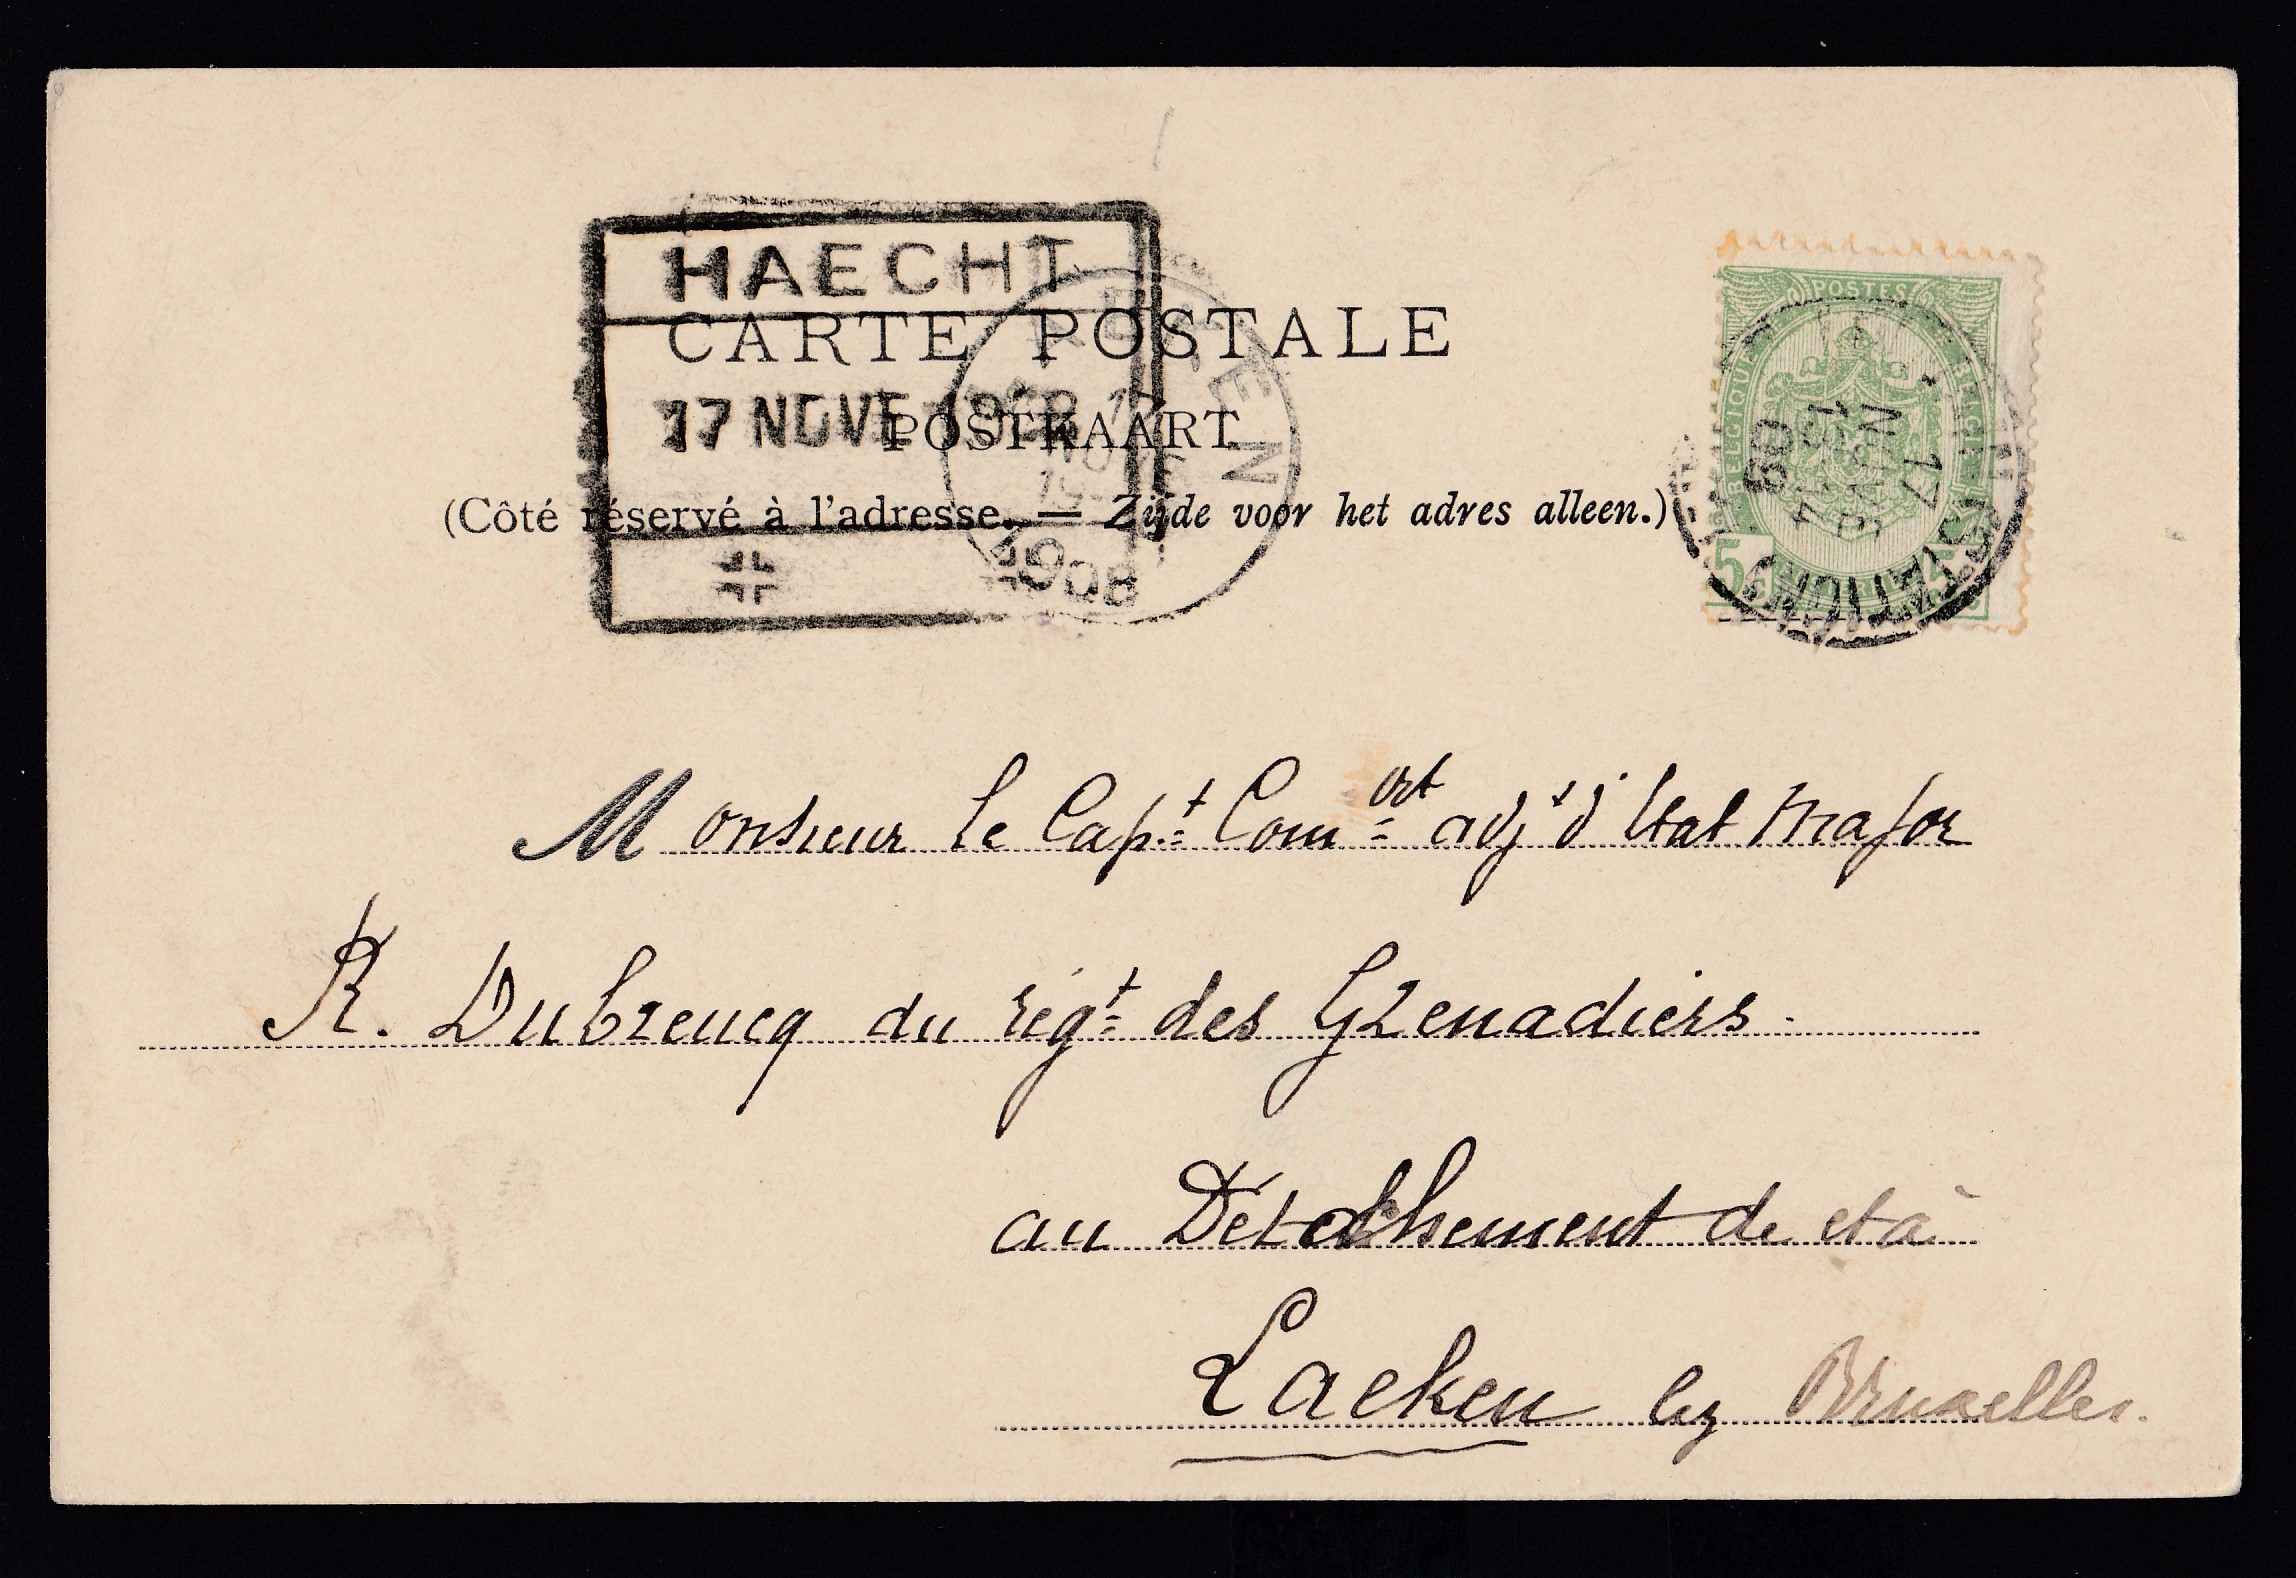 HAECHT
CARTE POSTALE
17 NOVE 1908
POSTKAART
(Côté réservé à l'adresse. — Zijde voor het adres alleen.)
1908
POSTES
BELGIQUE
BELGIE
17
NOV
5 5
(STATION)
Monsieur le Capt Comdt adjt d'Etat Major
R. Dubreucq du régt des Grenadiers.
au Détachement de et à
Laeken lez Bruxelles.